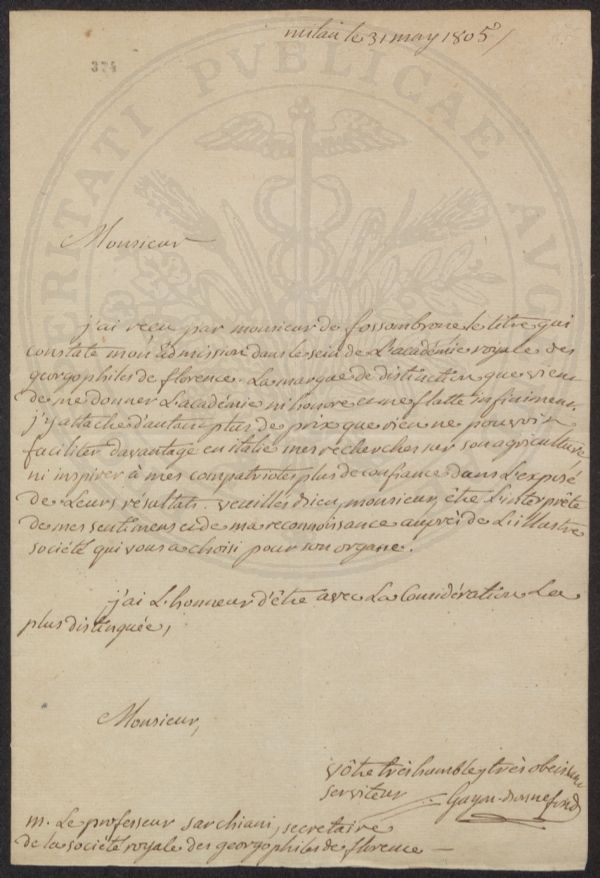 milan le 31 may 1805
374
VERITATI PVBLICAE AVG
Monsieur
j'ai reçu par monsieur de fossombrone le titre qui
constate mon admission dans le sein de L'académie royale des
georgophiles de florence. La marque de distinction que vient
de me donner L'académie m'honore et me flatte infiniment.
j'y attache d'autant plus de prix que rien ne pouvoit
faciliter davantage en italie mes recherches sur son agriculture
ni inspirer à mes compatriotes plus de confiance dans L'exposé
de Leurs résultats. veuillés bien, monsieur, être L'interprête
de mes sentimens et de ma reconnoissance auprès de L'illustre
société qui vous a choisi pour son organe.
j'ai L'honneur d'être avec La Considération La
plus distinguée,
Monsieur,
vôtre très humble & très obeissant
serviteur
m. Le professeur sarchiani, secretaire
de la société royale des georgophiles de florence —